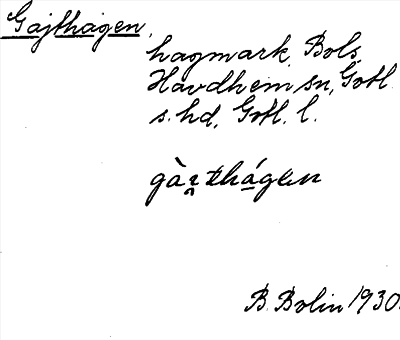 Gajthagen,
hagmark, Bols,
Havdhem sn, Gotl.
s. hd, Gotl. l.
gàı̯thágen
B. Bolin 1930.